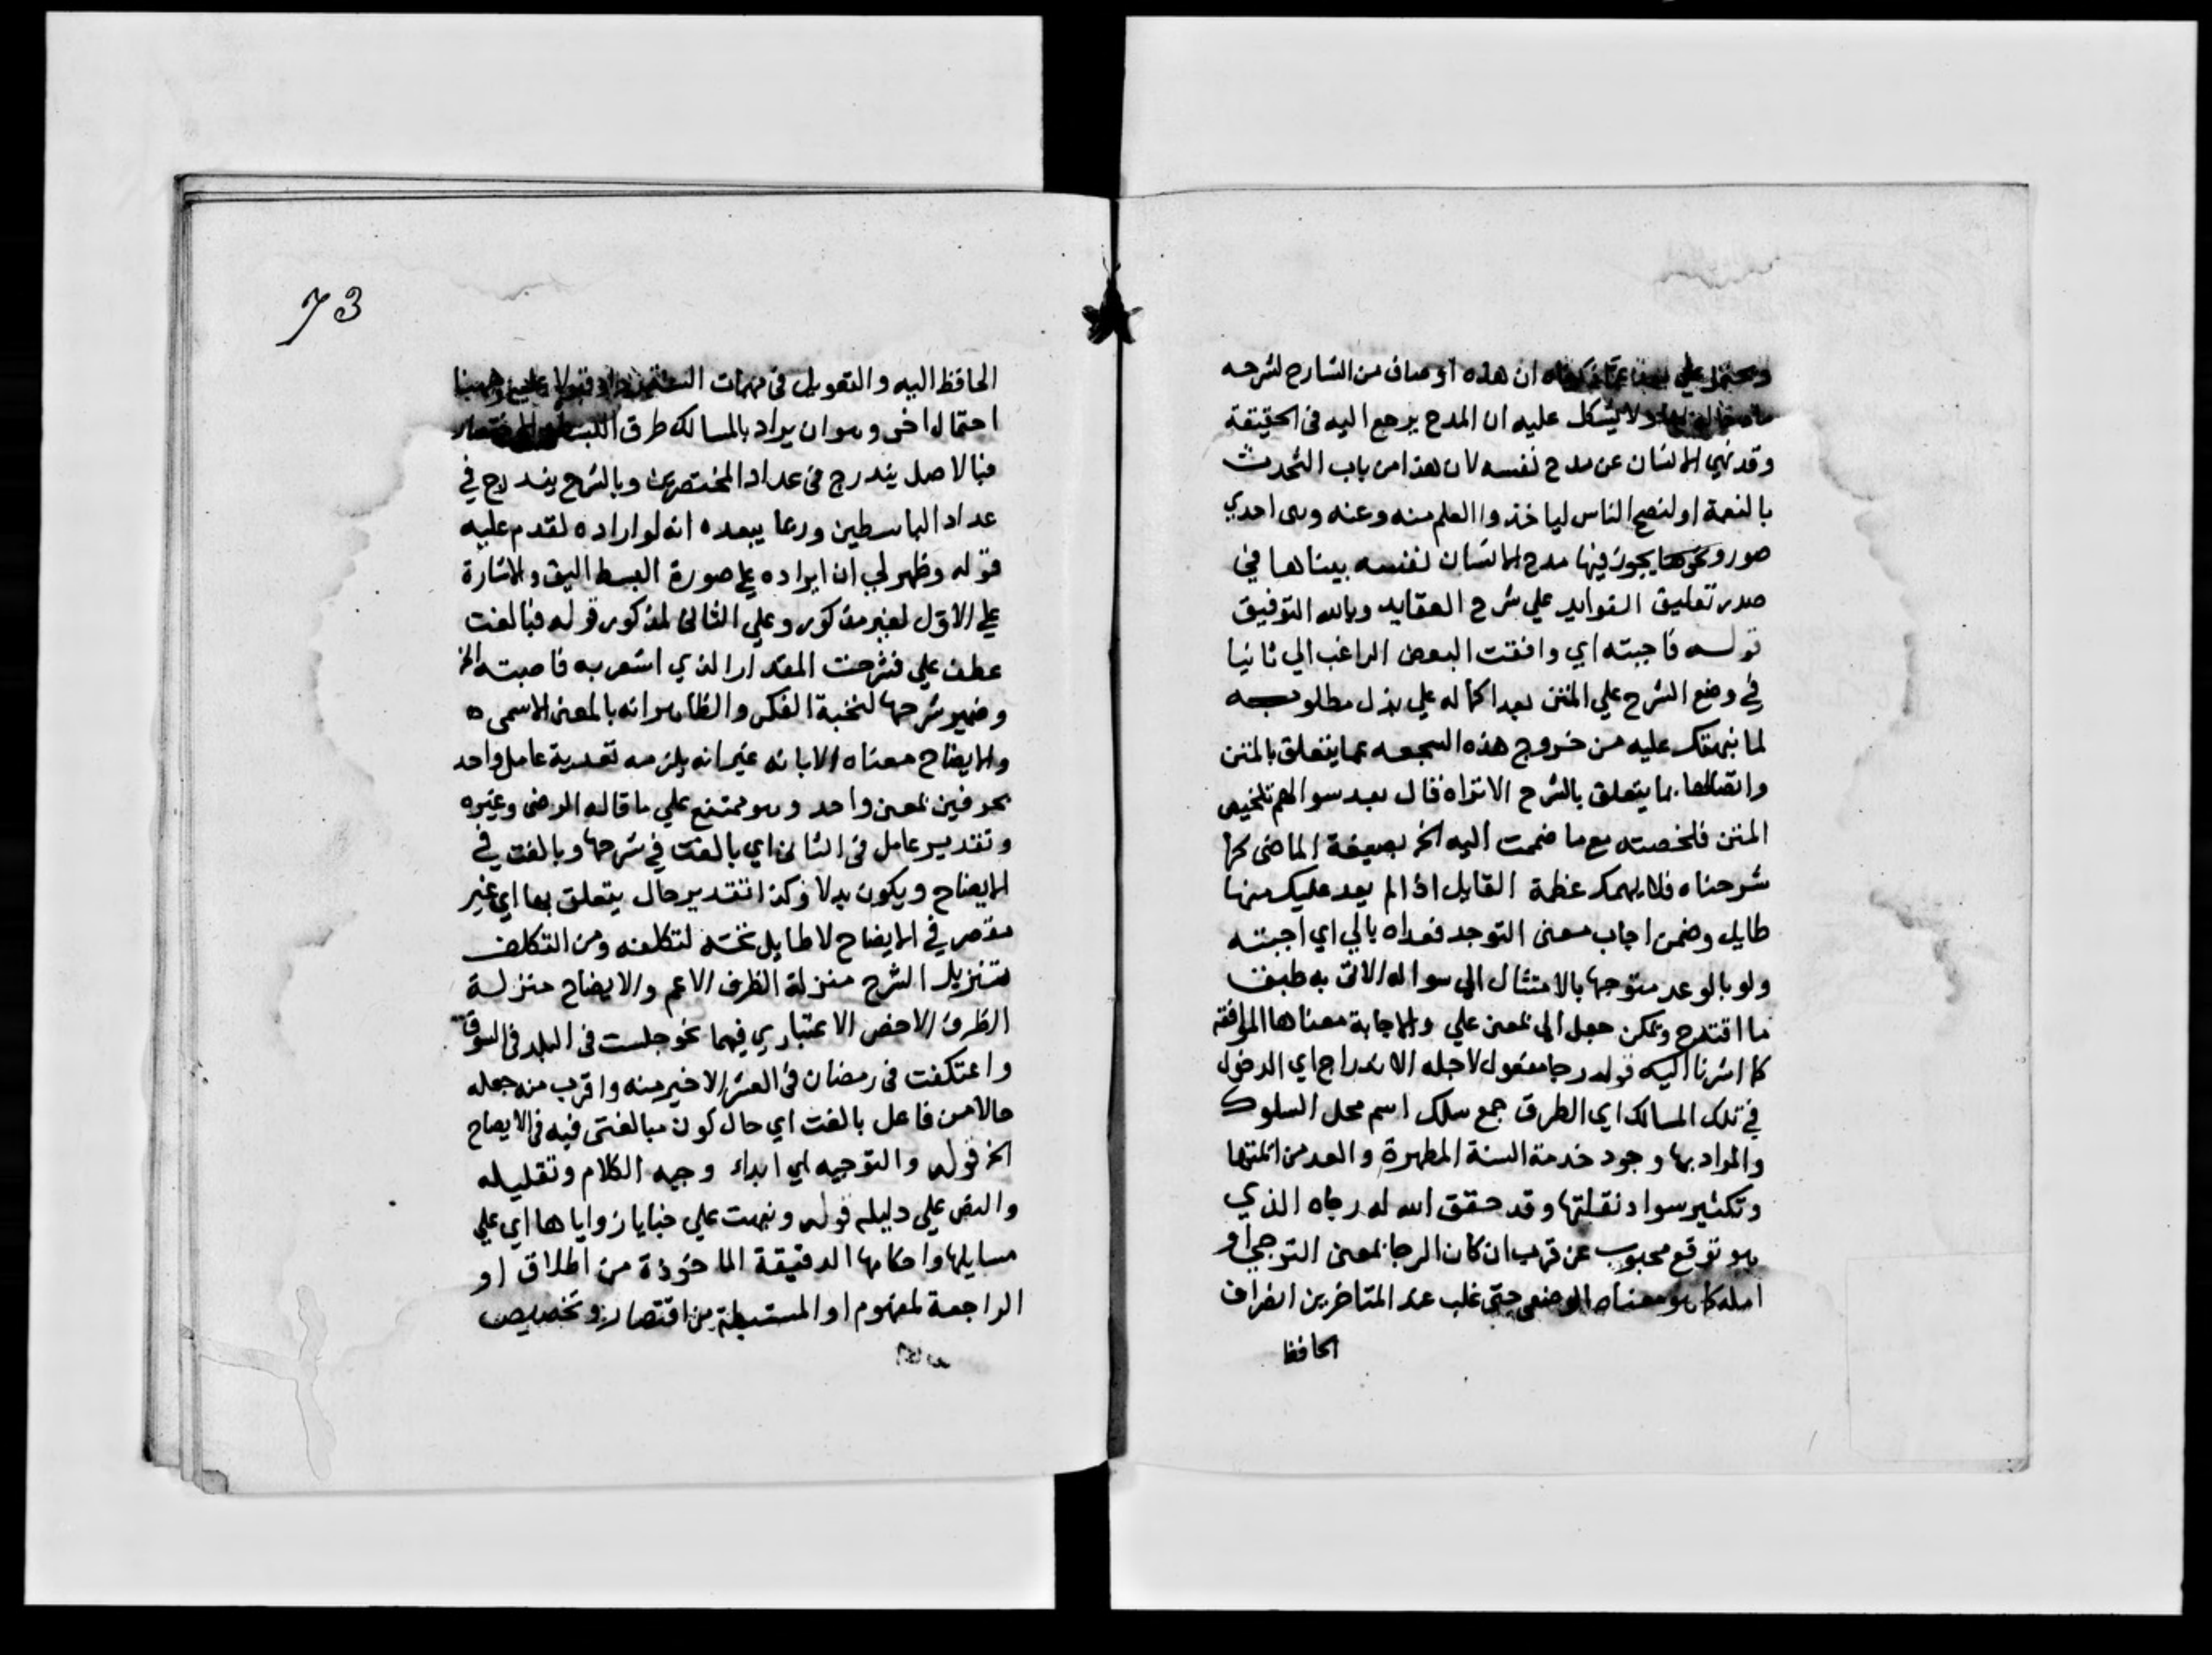 ان هذه اوصاف من الشارح لشرحه
ولا يشكل عليه ان المدح يرجع اليه في الحقيقة
وقد نهي الانسان عن مدح نفسه لان هذا من باب التحدث
بالنعمة او لنصح الناس لياخذوا العلم منه وعنه وهي احدي
صور ونحوها يجوز فيها مدح الانسان لنفسه بيناها في
صدر تعليق الفوايد علي شرح العقايد وبالله التوفيق
قولسه فاجبته اي وافقت البعض الراغب الي ثانيا
في وضع الشرح علي المتن بعد اكماله علي بذل مطلوبه
لما نبهتك عليه من خروج هذه السجعه عما يتعلق بالمتن
واتصالها بما يتعلق بالشرح الا تراه قال بعد سوالهم تلخيص
المتن فلخصته مع ما ضممت اليه الخ بصيغة الماضي
شرحناه فلا يهمك عظمة القايل اذا لم يعد عليك منها
طايل وضمن اجاب معنى التوجد فعداه بالي اي اجبته
ولو بالوعد متوجها بالامتثال الى سواله الاتى به طبق
ما اقترح ويمكن جعل الى بمعنى علي والاجابة معناها الموافقة
كما اشرنا اليه قوله رجا مفعول لاجله الاندراج اي الدخول
في تلك المسالك اي الطرق جمع سلك اسم محل السلوك
والمراد بها وجود خدمة السنة المطهرة والعد من ائمتها
وتكثير سواد نقلتها وقد حقق الله له رجاه الذي
هو توقع محبوب عن قرب ان كان الرجا بمعنى الترجي او
امله كما هو معناه الوضعي حتى غلب عند المتاخرين انصراف
الحافظ
73
الحافظ اليه والتعويل في مهمات
احتمال اخر وهو ان يراد بالمسالك طرق
فبالاصل يندرج في عداد المختصرين وبالشرح يندرج في
عداد الباسطين وربما يبعده انه لو اراده لقدم عليه
قوله وظهر لي ان ايراده علي صورة البسط اليق والاشارة
علي الاول لغير مذكور وعلي الثاني لمذكور قوله فبالغت
عطف علي فشرحت المقدر الذي اشعر به فاجبته الخ
وضمير شرحها لنخبة الفكر والظاهر انه بالمعنى الاسمي
والايضاح معناه الابانه غير انه يلزمه تعدية عامل واحد
بحرفين بمعنى واحد وهو ممتنع علي ما قاله الرضى وغيره
وتقدير عامل في الثاني اي بالغت في شرحها وبالغت في
الايضاح ويكون بدلا وكذا تقدير حال يتعلق بها اي غير
مقصر في الايضاح لا طايل تحته لتكلفه ومن التكلف
تنزيل الشرح منزلة الظرف الاعم والايضاح منزلة
الظرف الاخص الاعتباري فيهما نحو جلست في البلد في السوق
واعتكفت في رمضان في العشر الاخير منه واقرب منه جعله
حالا من فاعل بالغت اي حال كون مبالغتى فيه في الايضاح
الخ قوله والتوجيه اي ابداء وجيه الكلام وتقليله
والنص علي دليله قوله ونبهت علي خبايا زواياها اي علي
مسايلها واحكامها الدقيقة الماخوذة من اطلاق او
الراجعة لمفهوم او المستنبطة من اقتصار وتخصيص